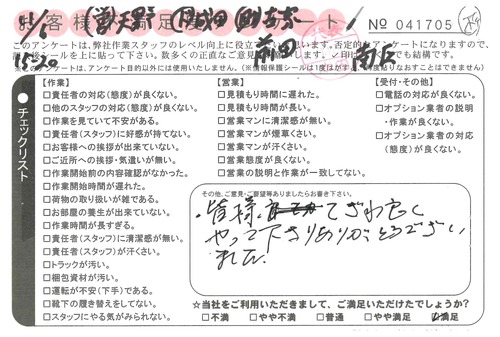 お客様満足度アンケート
No 041705
11/6
このアンケートは、弊社作業スタッフのレベル向上に役立
15:20
前田
南長
●チェックリスト
【作業】
□責任者の対応(態度)が良くない。
□他のスタッフの対応(態度)が良くない。
□作業を見ていて不安がある。
□責任者(スタッフ)に好感が持てない。
□お客様への挨拶が出来ていない。
□ご近所への挨拶・気遣いが無い。
□作業開始前の内容確認がなかった。
□作業開始時間が遅れた。
□荷物の取り扱いが雑である。
□お部屋の養生が出来ていない。
□作業時間が長すぎる。
□責任者(スタッフ)に清潔感が無い。
□責任者(スタッフ)が汗くさい。
□トラックが汚い。
□梱包資材が汚い。
□運転が不安(下手)である。
□靴下の履き替えをしてない。
□スタッフにやる気がみられない。
【営業】
□見積もり時間に遅れた。
□見積もり時間が長い。
□営業マンに清潔感が無い。
□営業マンが煙草くさい。
□営業マンが汗くさい。
□営業態度が良くない。
□営業の説明と作業が一致してない。
【受付・その他】
□電話の対応が良くない。
□オプション業者の説明・作業が良くない。
□オプション業者の対応(態度)が良くない。
その他、ご意見・ご要望等ありましたらお書き下さい。
皆様 てぎわ良く
やって下さりありがとうござい
ました
☆当社をご利用いただきまして、ご満足いただけたでしょうか?
□不満 □やや不満 □普通 □やや満足 ☑満足